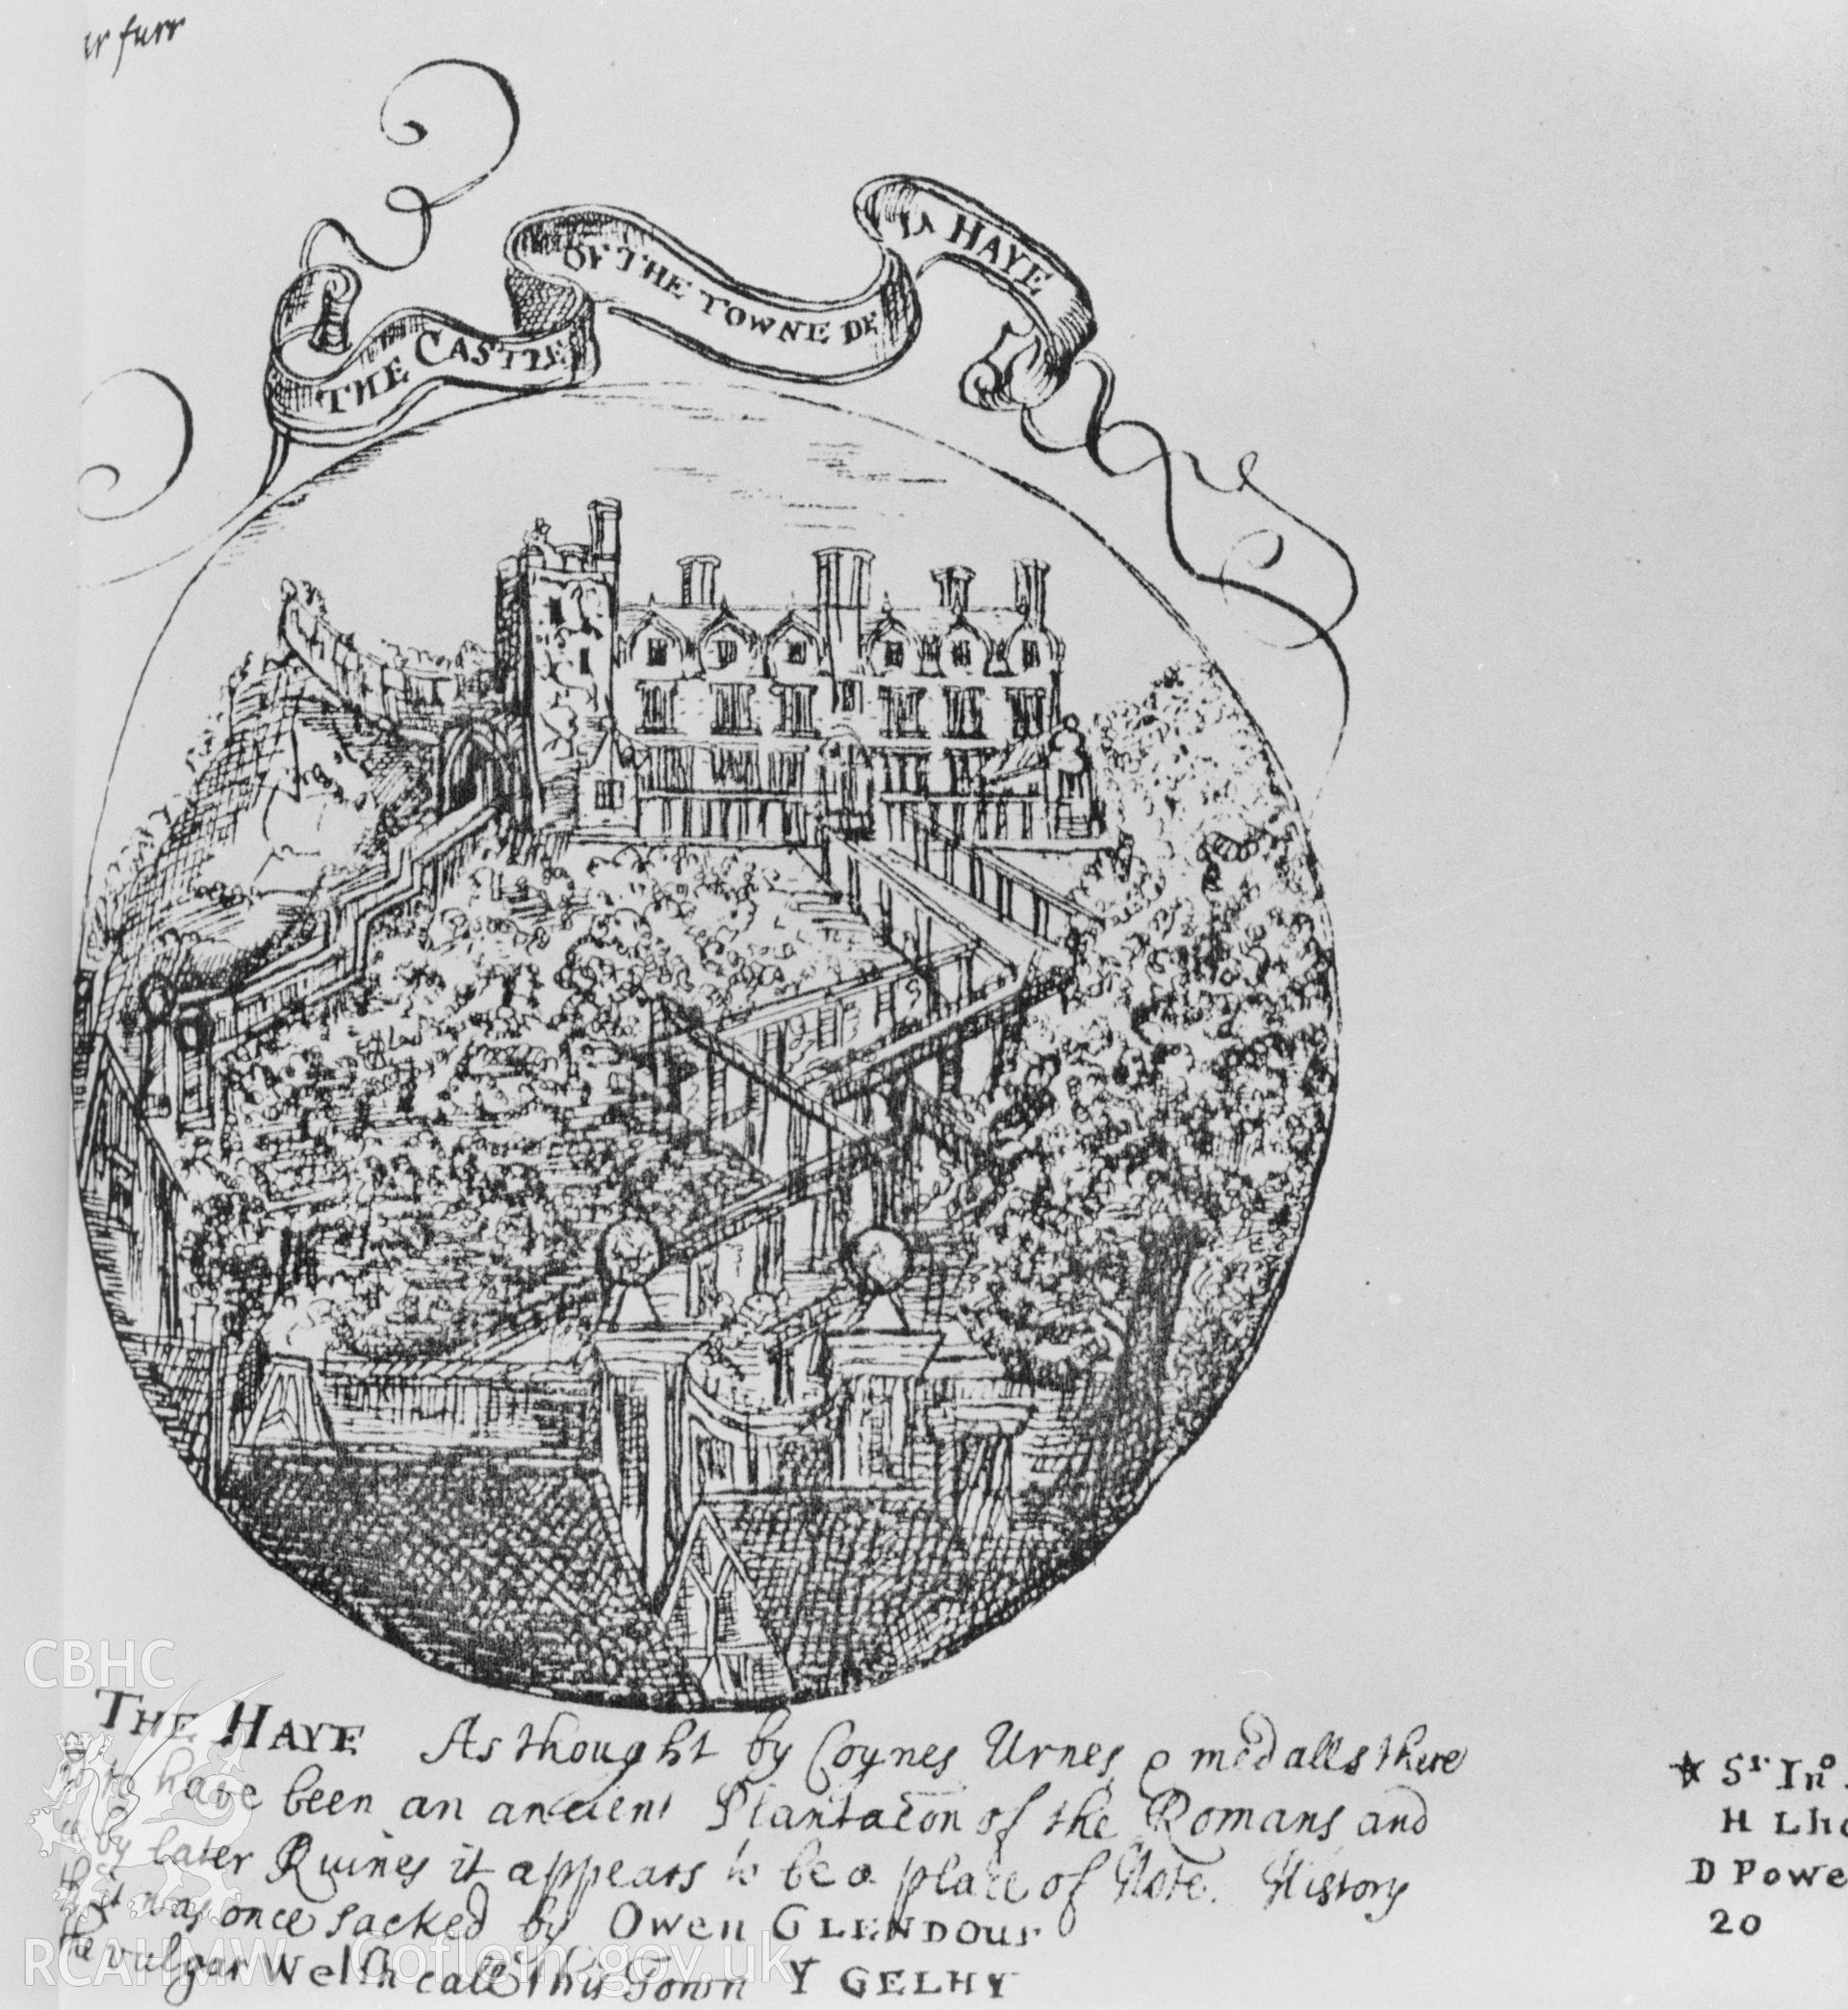 furr
THE CASTLE OF THE TOWNE DE LA HAYE
THE HAYE As thought by Coynes Urnes & medalls there
to have been an ancient Plantacon of the Romans and
by later Ruines it appears to be a place of Note. History
it was once sacked by Owen GLENDOUR
the vulgar Welsh call this Town Y GELHY
★ Sr Ino
H Lh
D Powe
20
CBHC
RCAHMW Coflein.gov.uk